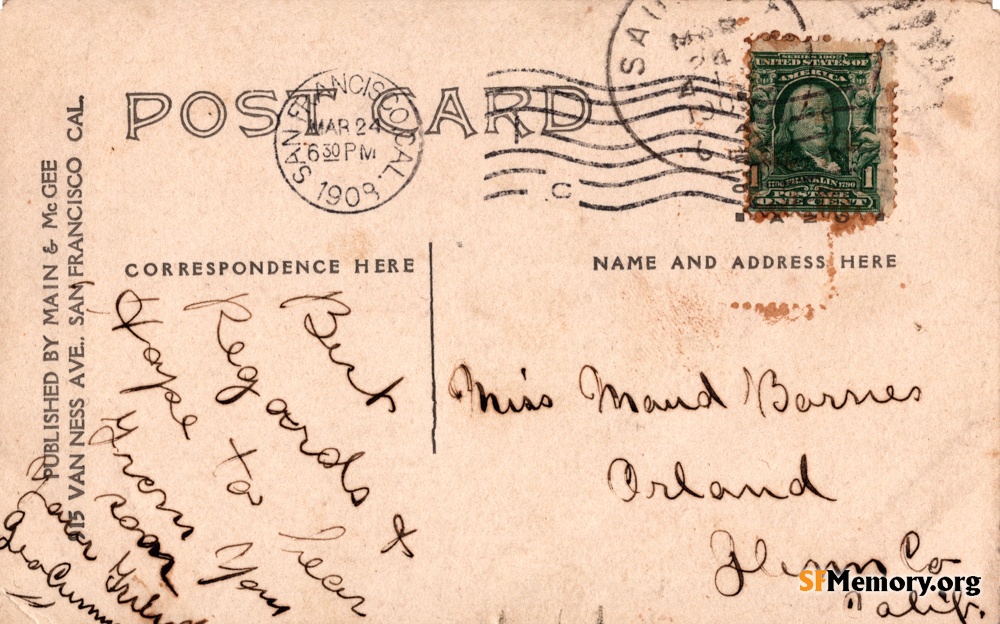 POST CARD
SAN FRANCISCO, CAL.
MAR 24
630 PM
1908
C
SERIES 1902
UNITED STATES OF
AMERICA
1
1706 FRANKLIN 1790
1
POSTAGE
ONE CENT
PUBLISHED BY MAIN & McGEE
915 VAN NESS AVE., SAN FRANCISCO CAL.
CORRESPONDENCE HERE
NAME AND ADDRESS HERE
Best
Regards &
Hope to hear
from you
soon
Miss Maud Barnes
Orland
Glenn Co
Calif.
SFMemory.org